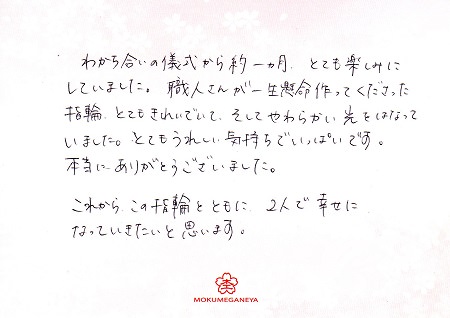 わかち合いの儀式から約一ヵ月、とても楽しみに
していました。職人さんが一生懸命作ってくださった
指輪、とてもきれいでいて、そしてやわらかい光をはなって
いました。とてもうれしい気持ちでいっぱいです。
本当にありがとうございました。
これから、この指輪とともに、2人で幸せに
なっていきたいと思います。
MOKUMEGANEYA